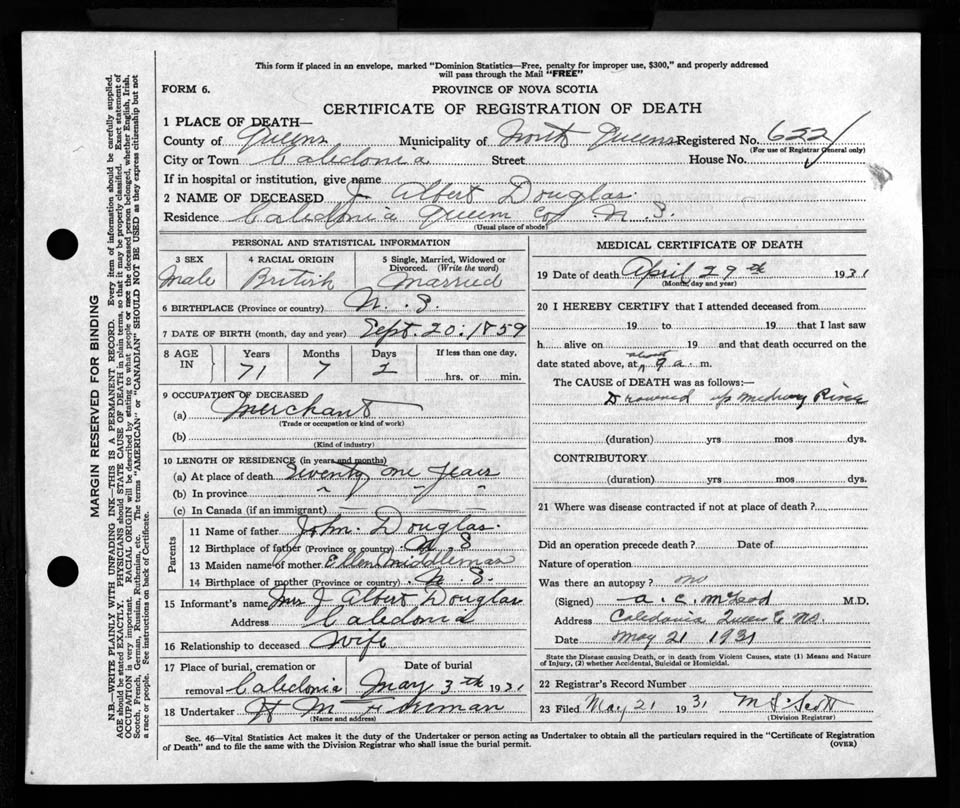 This form if placed in an envelope, marked "Dominion Statistics—Free, penalty for improper use, $300," and properly addressed
will pass through the Mail "FREE"
FORM 6.
PROVINCE OF NOVA SCOTIA
CERTIFICATE OF REGISTRATION OF DEATH
1 PLACE OF DEATH—
County of Queens Municipality of North Queens Registered No. 622
(For use of Registrar General only)
City or Town Caledonia Street House No.
If in hospital or institution, give name
2 NAME OF DECEASED J Albert Douglas.
Residence Caledonia Queens Co N. S.
(Usual place of abode)
PERSONAL AND STATISTICAL INFORMATION
3 SEX 4 RACIAL ORIGIN 5 Single, Married, Widowed or
Divorced. (Write the word)
Male British Married
6 BIRTHPLACE (Province or country) N. S.
7 DATE OF BIRTH (month, day and year) Sept. 20. 1859
8 AGE IN Years Months Days If less than one day,
71 7 hrs. or min.
9 OCCUPATION OF DECEASED
(a) Merchant
(Trade or occupation or kind of work)
(b)
(Kind of industry)
10 LENGTH OF RESIDENCE (in years and months)
(a) At place of death Seventy one years
(b) In province " " "
(c) In Canada (if an immigrant)
Parents
11 Name of father John Douglas.
12 Birthplace of father (Province or country) N. S
13 Maiden name of mother Ellen Middlemas
14 Birthplace of mother (Province or country) N. S.
15 Informant's name Mrs J Albert Douglas
Address Caledonia
16 Relationship to deceased Wife
17 Place of burial, cremation or
removal Caledonia
Date of burial
May 3th 1931
18 Undertaker H M
(Name and address)
MEDICAL CERTIFICATE OF DEATH
19 Date of death April 29th 1931
(Month, day and year)
20 I HEREBY CERTIFY that I attended deceased from
19 to 19 that I last saw
h alive on 19 and that death occurred on the
date stated above, at about 9 a. m.
The CAUSE OF DEATH was as follows:—
Drowned up Medway River
(duration) yrs mos dys.
CONTRIBUTORY
(duration) yrs. mos dys.
21 Where was disease contracted if not at place of death?
Did an operation precede death? Date of
Nature of operation
Was there an autopsy? no
(Signed) a. C. McLeod M.D.
Address Caledonia Queens Co NS.
Date May 21 1931
State the Disease causing Death, or in death from Violent Causes, state (1) Means and Nature
of Injury, (2) whether Accidental, Suicidal or Homicidal.
22 Registrar's Record Number
23 Filed May 21 1931 Scott
(Division Registrar)
Sec. 46—Vital Statistics Act makes it the duty of the Undertaker or person acting as Undertaker to obtain all the particulars required in the "Certificate of Registration
of Death" and to file the same with the Division Registrar who shall issue the burial permit.
(OVER)
MARGIN RESERVED FOR BINDING
N.B.—WRITE PLAINLY WITH UNFADING INK—THIS IS A PERMANENT RECORD. Every item of information should be carefully supplied.
AGE should be stated EXACTLY. PHYSICIANS should STATE CAUSE OF DEATH in plain terms, so that it may be properly classified. Exact statement of
OCCUPATION is very important. RACIAL ORIGIN will be described by stating to what people or race the deceased person belonged, whether English, Irish,
Scotch, French, German, Russian, Ruthenian, etc. The terms "AMERICAN" or "CANADIAN" SHOULD NOT BE USED as they express citizenship but not
a race or people. See instructions on back of Certificate.